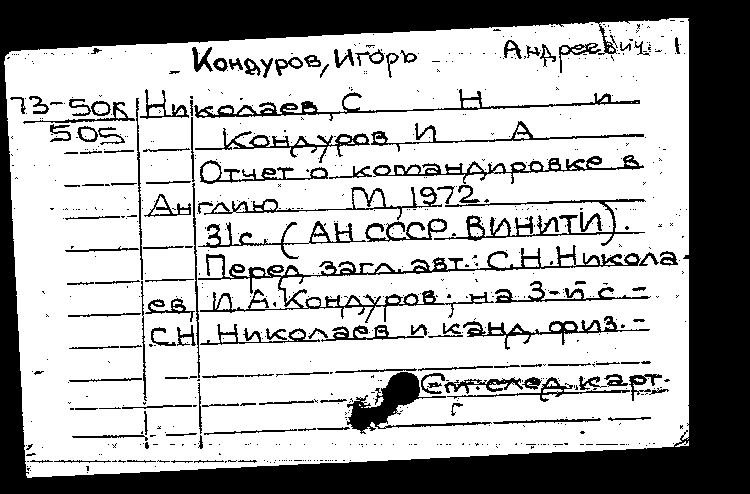 Кондуров, Игорь Андреевич 1
73-50к Николаев, С Н и
505 Кондуров, И А
Отчет о командировке в
Англию М, 1972.
31с. (АН СССР. ВИНИТИ).
Перед загл. авт.: С.Н.Никола-
ев, И.А.Кондуров; на 3-й с.-
С.Н.Николаев и канд. физ.-
См. след. карт.